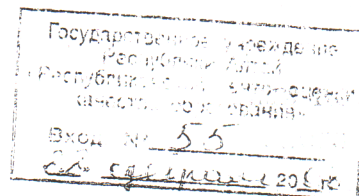 Государственное учреждение
Республики Алтай
«Республиканский центр оценки
качества образования»
Вход. № 55
20 г.